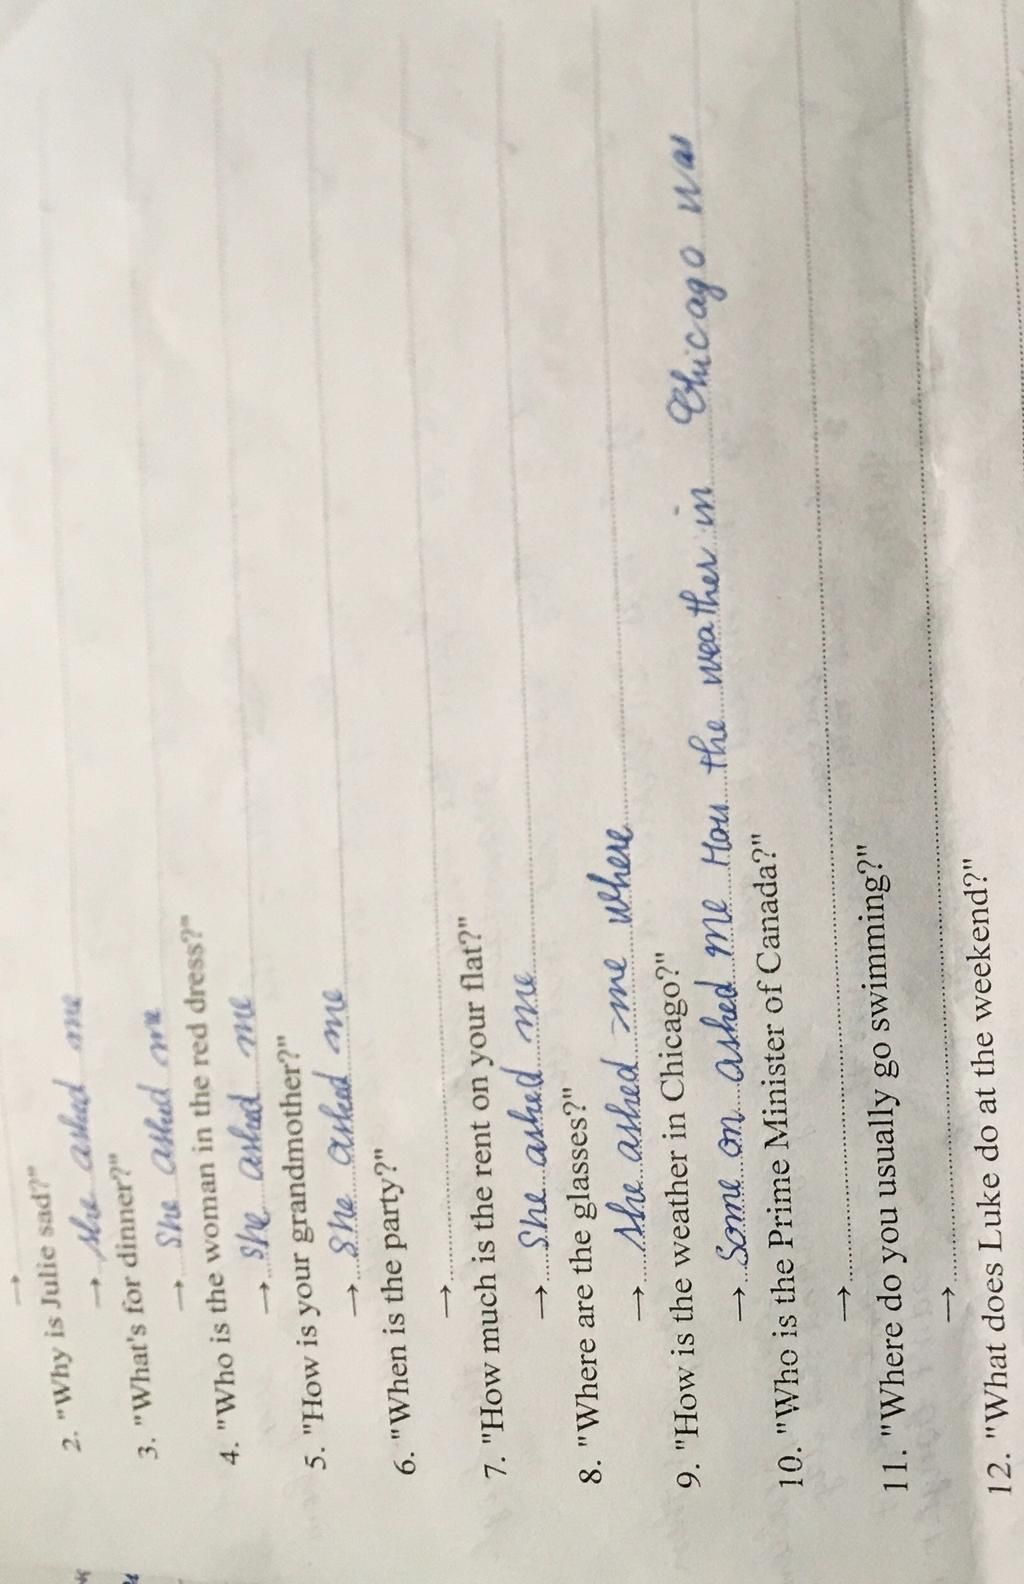 →
2. "Why is Julie sad?"
→ she asked me
3. "What's for dinner?"
→ She asked me
4. "Who is the woman in the red dress?"
→ She asked me
5. "How is your grandmother?"
→ She asked me
6. "When is the party?"
→
7. "How much is the rent on your flat?"
→ She asked me
8. "Where are the glasses?"
→ she asked me where
9. "How is the weather in Chicago?"
→ Some on asked me How the weather in Chicago was
10. "Who is the Prime Minister of Canada?"
→
11. "Where do you usually go swimming?"
→
12. "What does Luke do at the weekend?"